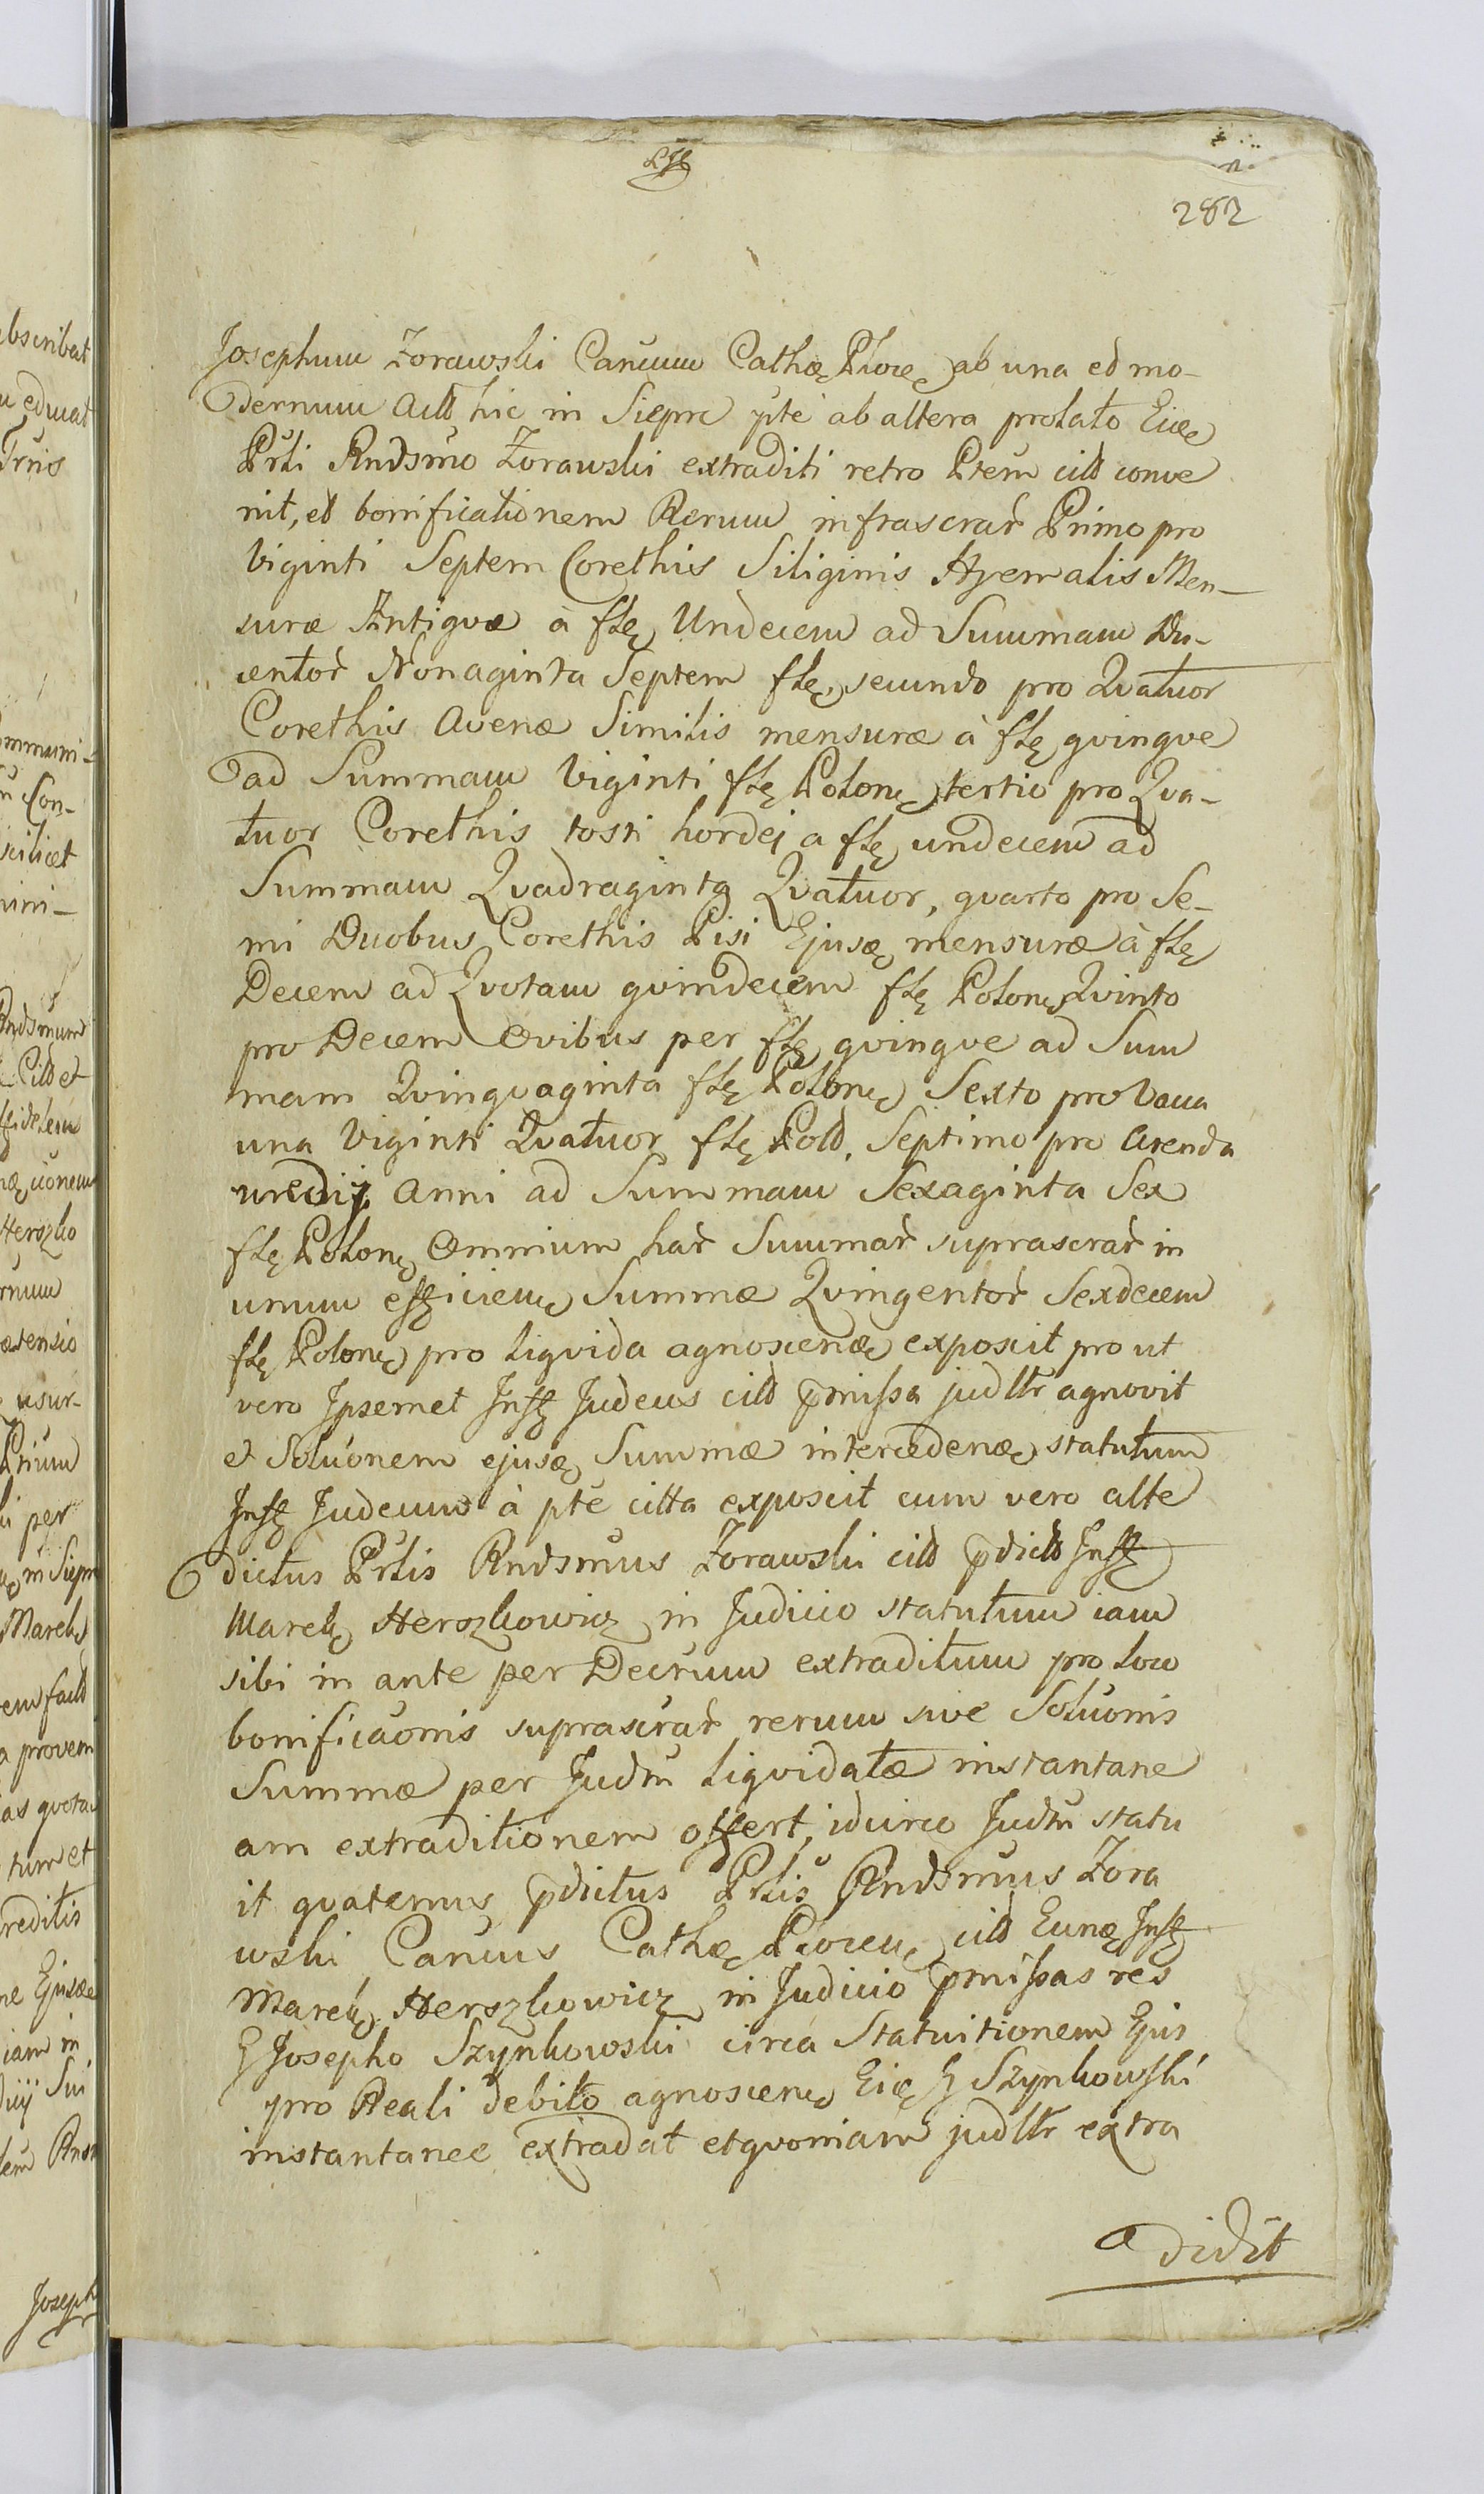 282
Josephum Zorawski Cancum Cathæ Plocæ ab una ed mo-
dernum Actt hic in Siepre pte ab altera prolato Eidę
Prlti Rndsmo Zorawski extraditi retro Ptem citt conve
nit, et bonificationem Rerum infrascrar Primo pro
Viginti Septem Corethis Siliginis Hyemalis Men-
suræ Antiqvæ à flę Undecem ad Summam Du-
centor Nonaginta Septem flę, secundo pro Qvatuor
Corethis Avenæ Similis mensuræ à flę qvinqve
ad Summam Viginti flę Polonę, tertio pro Qva-
tuor Corethis tosti hordej a flę undecem ad
Summam Qvadraginta Qvatuor, qvarto pro Se-
mi Duobus Corethis Pisi Ejusę mensuræ à flę
Decem ad Qvotam qvindecem flę Polonę Qvinto
pro Decem Ovibus per flę qvinqve ad Sum
mam Qvinqvaginta flę Polonę Sexto pro Vacca
una Viginti Qvatuor flę Poll. Septimo pro Arenda
medij Anni ad Summam Sexaginta Sex
flę Polonę Omnium har Summar suprascrar in
unum efficienę Summæ Qvingentor Sexdecem
flę Polonę pro liqvida agnoscenæ exposcit prout
vero Ipsemet Inflę Judeus citt pmissa judltr agnovit
et Soluonem ejusę Summæ intercedenæ statutum
Inflę Judeum à pte citta exposcit cum vero alte
dictus Prltis Rndsmus Zorawski citt pdictt Inflę
Marekę Herszkowicz in Judicio statutum iam
sibi in ante per Decrum extraditum pro loco
bonificaonis suprascrar rerum sive Soluonis
Summæ per Judm liqvidatæ instantane
am extraditionem offert, idcirco Judm statu
it qvatenus pdictus Prltis Rndsmus Zora
wski Cancus Cathę Plocenę citt Eunę Inflę
Marekę Herszkowicz in Judicio pmissas res
G Josepho Szynkowski circa Statuitionem Ejus
pro Reali debito agnoscenę Eidę G Szynkowski
instantanee extradat et qvoniam judltr extra
didit